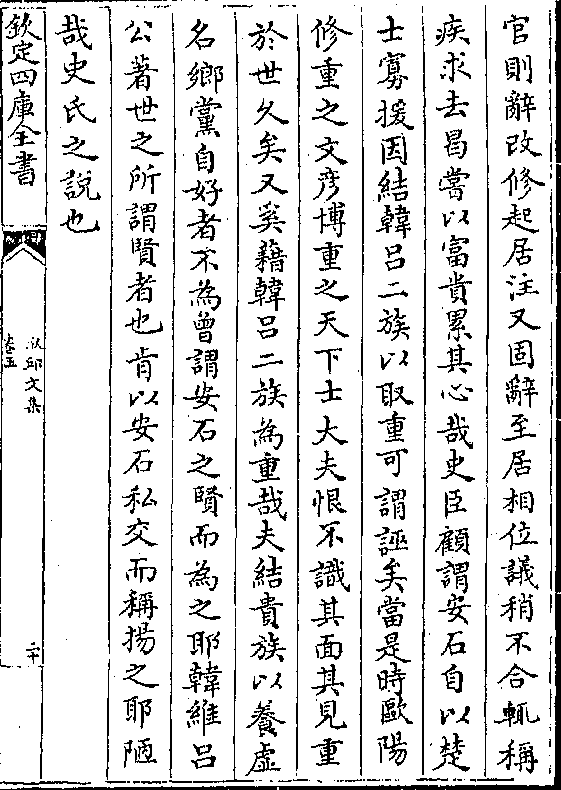 官則辭改修起居注又固辭至居相位議稍不合輒稱
疾求去曷嘗以富貴累其心哉史臣顧謂安石自以楚
士寡援因結韓吕二族以取重可謂誣矣當是時歐陽
修重之文彦博重之天下士大夫恨不識其面其見重
於世久矣又奚藉韓吕二族為重哉夫結貴族以養虚
名鄉黨自好者不為曾謂安石之賢而為之耶韓維吕
公著世之所謂賢者也肯以安石私交而稱揚之耶陋
哉史氏之說也
欽定四庫全書
文集
卷五
二十